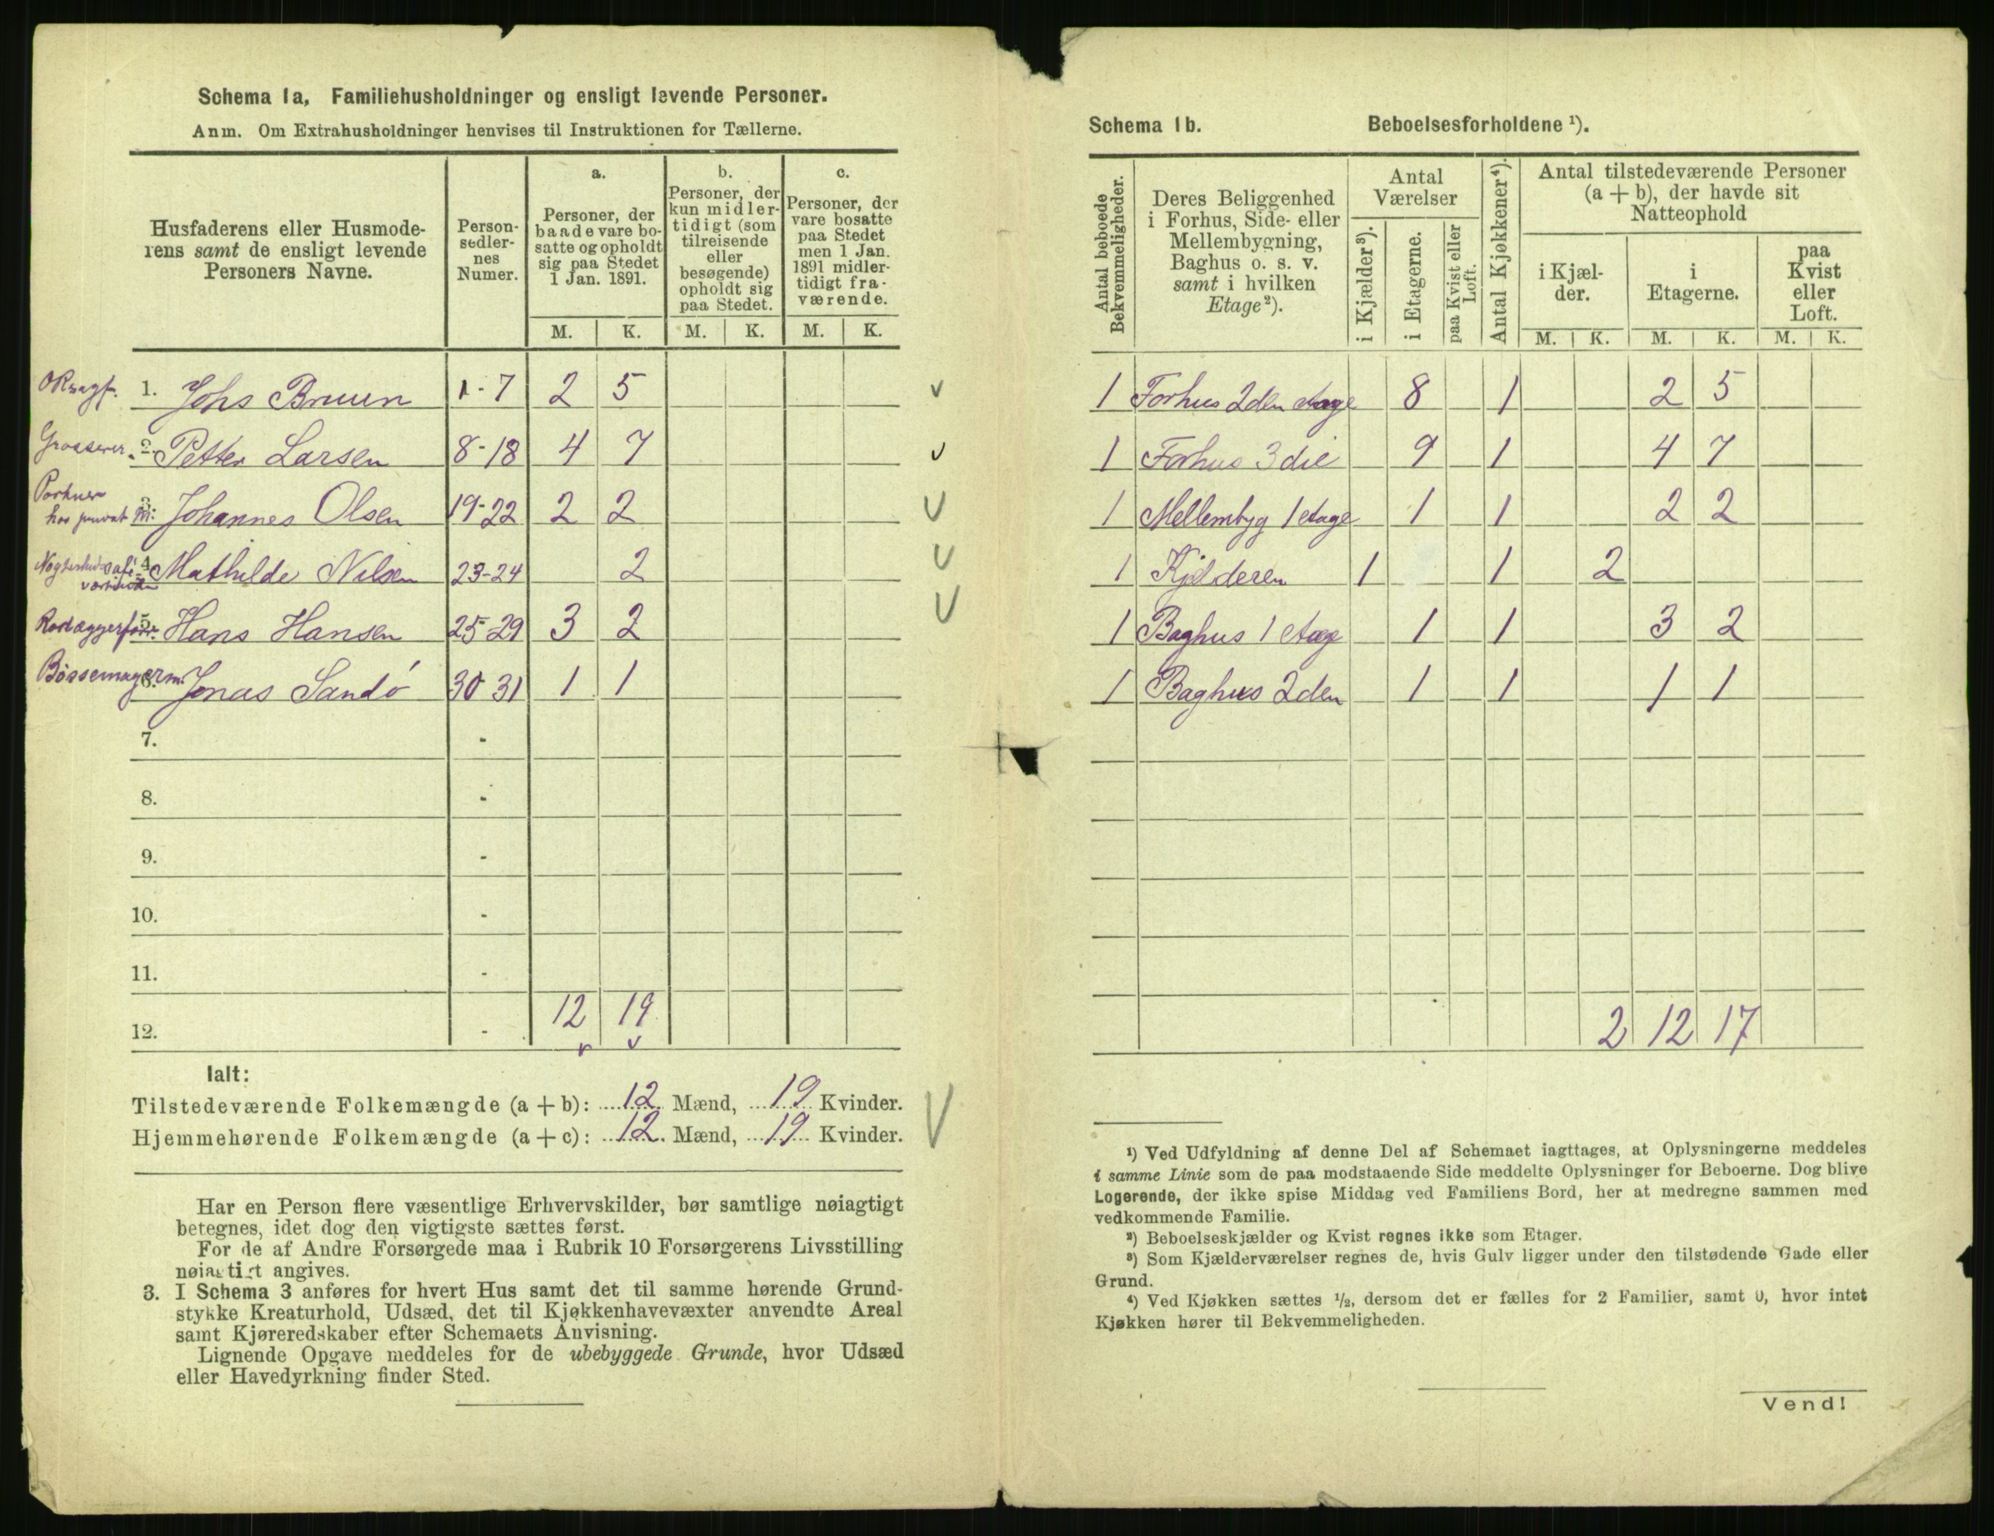 Schema 1a, Familiehusholdninger og ensligt levende Personer.
Anm. Om Extrahusholdninger henvises til Instruktionen for Tællerne.
Husfaderens eller Husmode-
rens samt de ensligt levende
Personers Navne.
Person-
sedler-
nes
Numer.
a.
Personer, der
baade vare bo-
satte og opholdt
sig paa Stedet
1 Jan. 1891.
b.
Personer, der
kun midler-
tidigt (som
tilreisende
eller
besøgende)
opholdt sig
paa Stedet.
c.
Personer, der
vare bosatte
paa Stedet
men 1 Jan.
1891 midler-
tidigt fra-
værende.
M. K. M. K. M. K.
1. Johs Bruun 1-7 2 5
Grosserer. 2. Petter Larsen 8-18 4 7
Portner
hos privat M: 3. Johannes Olsen 19-22 2 2
4. Mathilde Nilsen 23-24 2
5. Hans Hansen 25-29 3 2
Bössemagerm. 6. Jonas Sandö 30 31 1 1
7. -
8. -
9. -
10. -
11. -
12. - 12 19
Ialt:
Tilstedeværende Folkemængde (a + b): 12 Mænd, 19 Kvinder.
Hjemmehørende Folkemængde (a + c): 12 Mænd, 19 Kvinder.
Har en Person flere væsentlige Erhvervskilder, bør samtlige nøiagtigt
betegnes, idet dog den vigtigste sættes først.
For de af Andre Forsørgede maa i Rubrik 10 Forsørgerens Livsstilling
nøiagtigt angives.
3. I Schema 3 anføres for hvert Hus samt det til samme hørende Grund-
stykke Kreaturhold, Udsæd, det til Kjøkkenhavevæxter anvendte Areal
samt Kjøreredskaber efter Schemaets Anvisning.
Lignende Opgave meddeles for de ubebyggede Grunde, hvor Udsæd
eller Havedyrkning finder Sted.
Schema 1b. Beboelsesforholdene ¹).
Antal beboede
Bekvemmeligheder.
Deres Beliggenhed
i Forhus, Side- eller
Mellembygning,
Baghus o. s. v.
samt i hvilken
Etage ²).
Antal
Værelser
i Kjælder ³).
i Etagerne.
paa Kvist eller
Loft.
Antal Kjøkkener ⁴).
Antal tilstedeværende Personer
(a + b), der havde sit
Natteophold
i Kjæl-
der.
i
Etagerne.
paa
Kvist
eller
Loft.
M. K. M. K. M. K.
1 Forhus 2den etage 8 1 2 5
1 Forhus 3die 9 1 4 7
1 Mellembyg 1 etage 1 1 2 2
1 Kjelderen 1 1 2
1 Baghus 1 etage 1 1 3 2
1 Baghus 2den 1 1 1 1
2 12 17
¹) Ved Udfyldning af denne Del af Schemaet iagttages, at Oplysningerne meddeles
i samme Linie som de paa modstaaende Side meddelte Oplysninger for Beboerne. Dog blive
Logerende, der ikke spise Middag ved Familiens Bord, her at medregne sammen med
vedkommende Familie.
²) Beboelseskjælder og Kvist regnes ikke som Etager.
³) Som Kjælderværelser regnes de, hvis Gulv ligger under den tilstødende Gade eller
Grund.
⁴) Ved Kjøkken sættes ½, dersom det er fælles for 2 Familier, samt 0, hvor intet
Kjøkken hører til Bekvemmeligheden.
Vend!